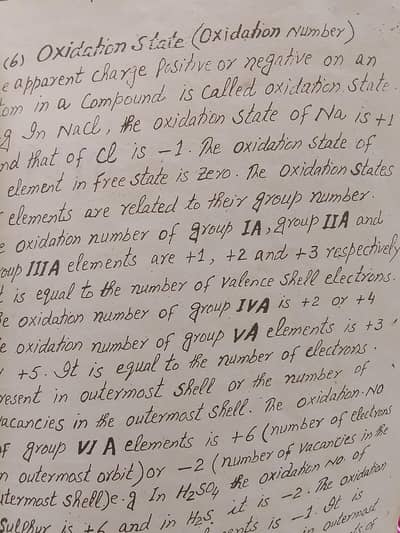 (6) Oxidation State (Oxidation Number)
e apparent charge Positive or negative on an
tom in a Compound is called oxidation state.
g In NaCl, the oxidation state of Na is +1
nd that of Cl is -1. The oxidation state of
element in free state is Zero. The Oxidation States
elements are related to their group number.
e oxidation number of group IA, group IIA and
roup IIIA elements are +1, +2 and +3 respectively
t is equal to the number of valence shell electrons.
e oxidation number of group IVA is +2 or +4
e oxidation number of group VA elements is +3
+5. It is equal to the number of electrons.
resent in outermost shell or the number of
vacancies in the outermost shell. The oxidation. No
of group VI A elements is +6 (number of electrons
n outermost orbit) or -2 (number of vacancies in the
utermost shell) e.g In H2SO4 the oxidation no. of
Sulphur is +6 and in H2S it is -2. The oxidation
ents is -1. It is
in outermost